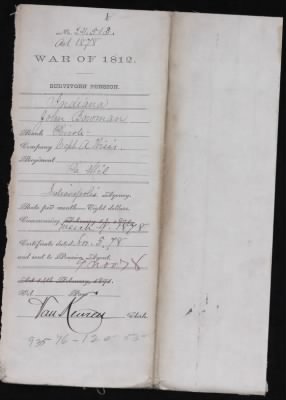 No. 24,513.
Act 1878
WAR OF 1812.
SURVIVORS PENSION.
Indiana
John Bowman
Rank
Company Capt. A.
Regiment
Pa Mil
Indianapolis Agency.
Rate per month Eight dollars.
Commencing February 14, 1871
March 9, 1878
Certificate dated Nov. 5. 78
and sent to Pension Agent,
9 Nov 78
Act 14th February, 1871.
Vol. Page
Van Clerk.
935 76-12